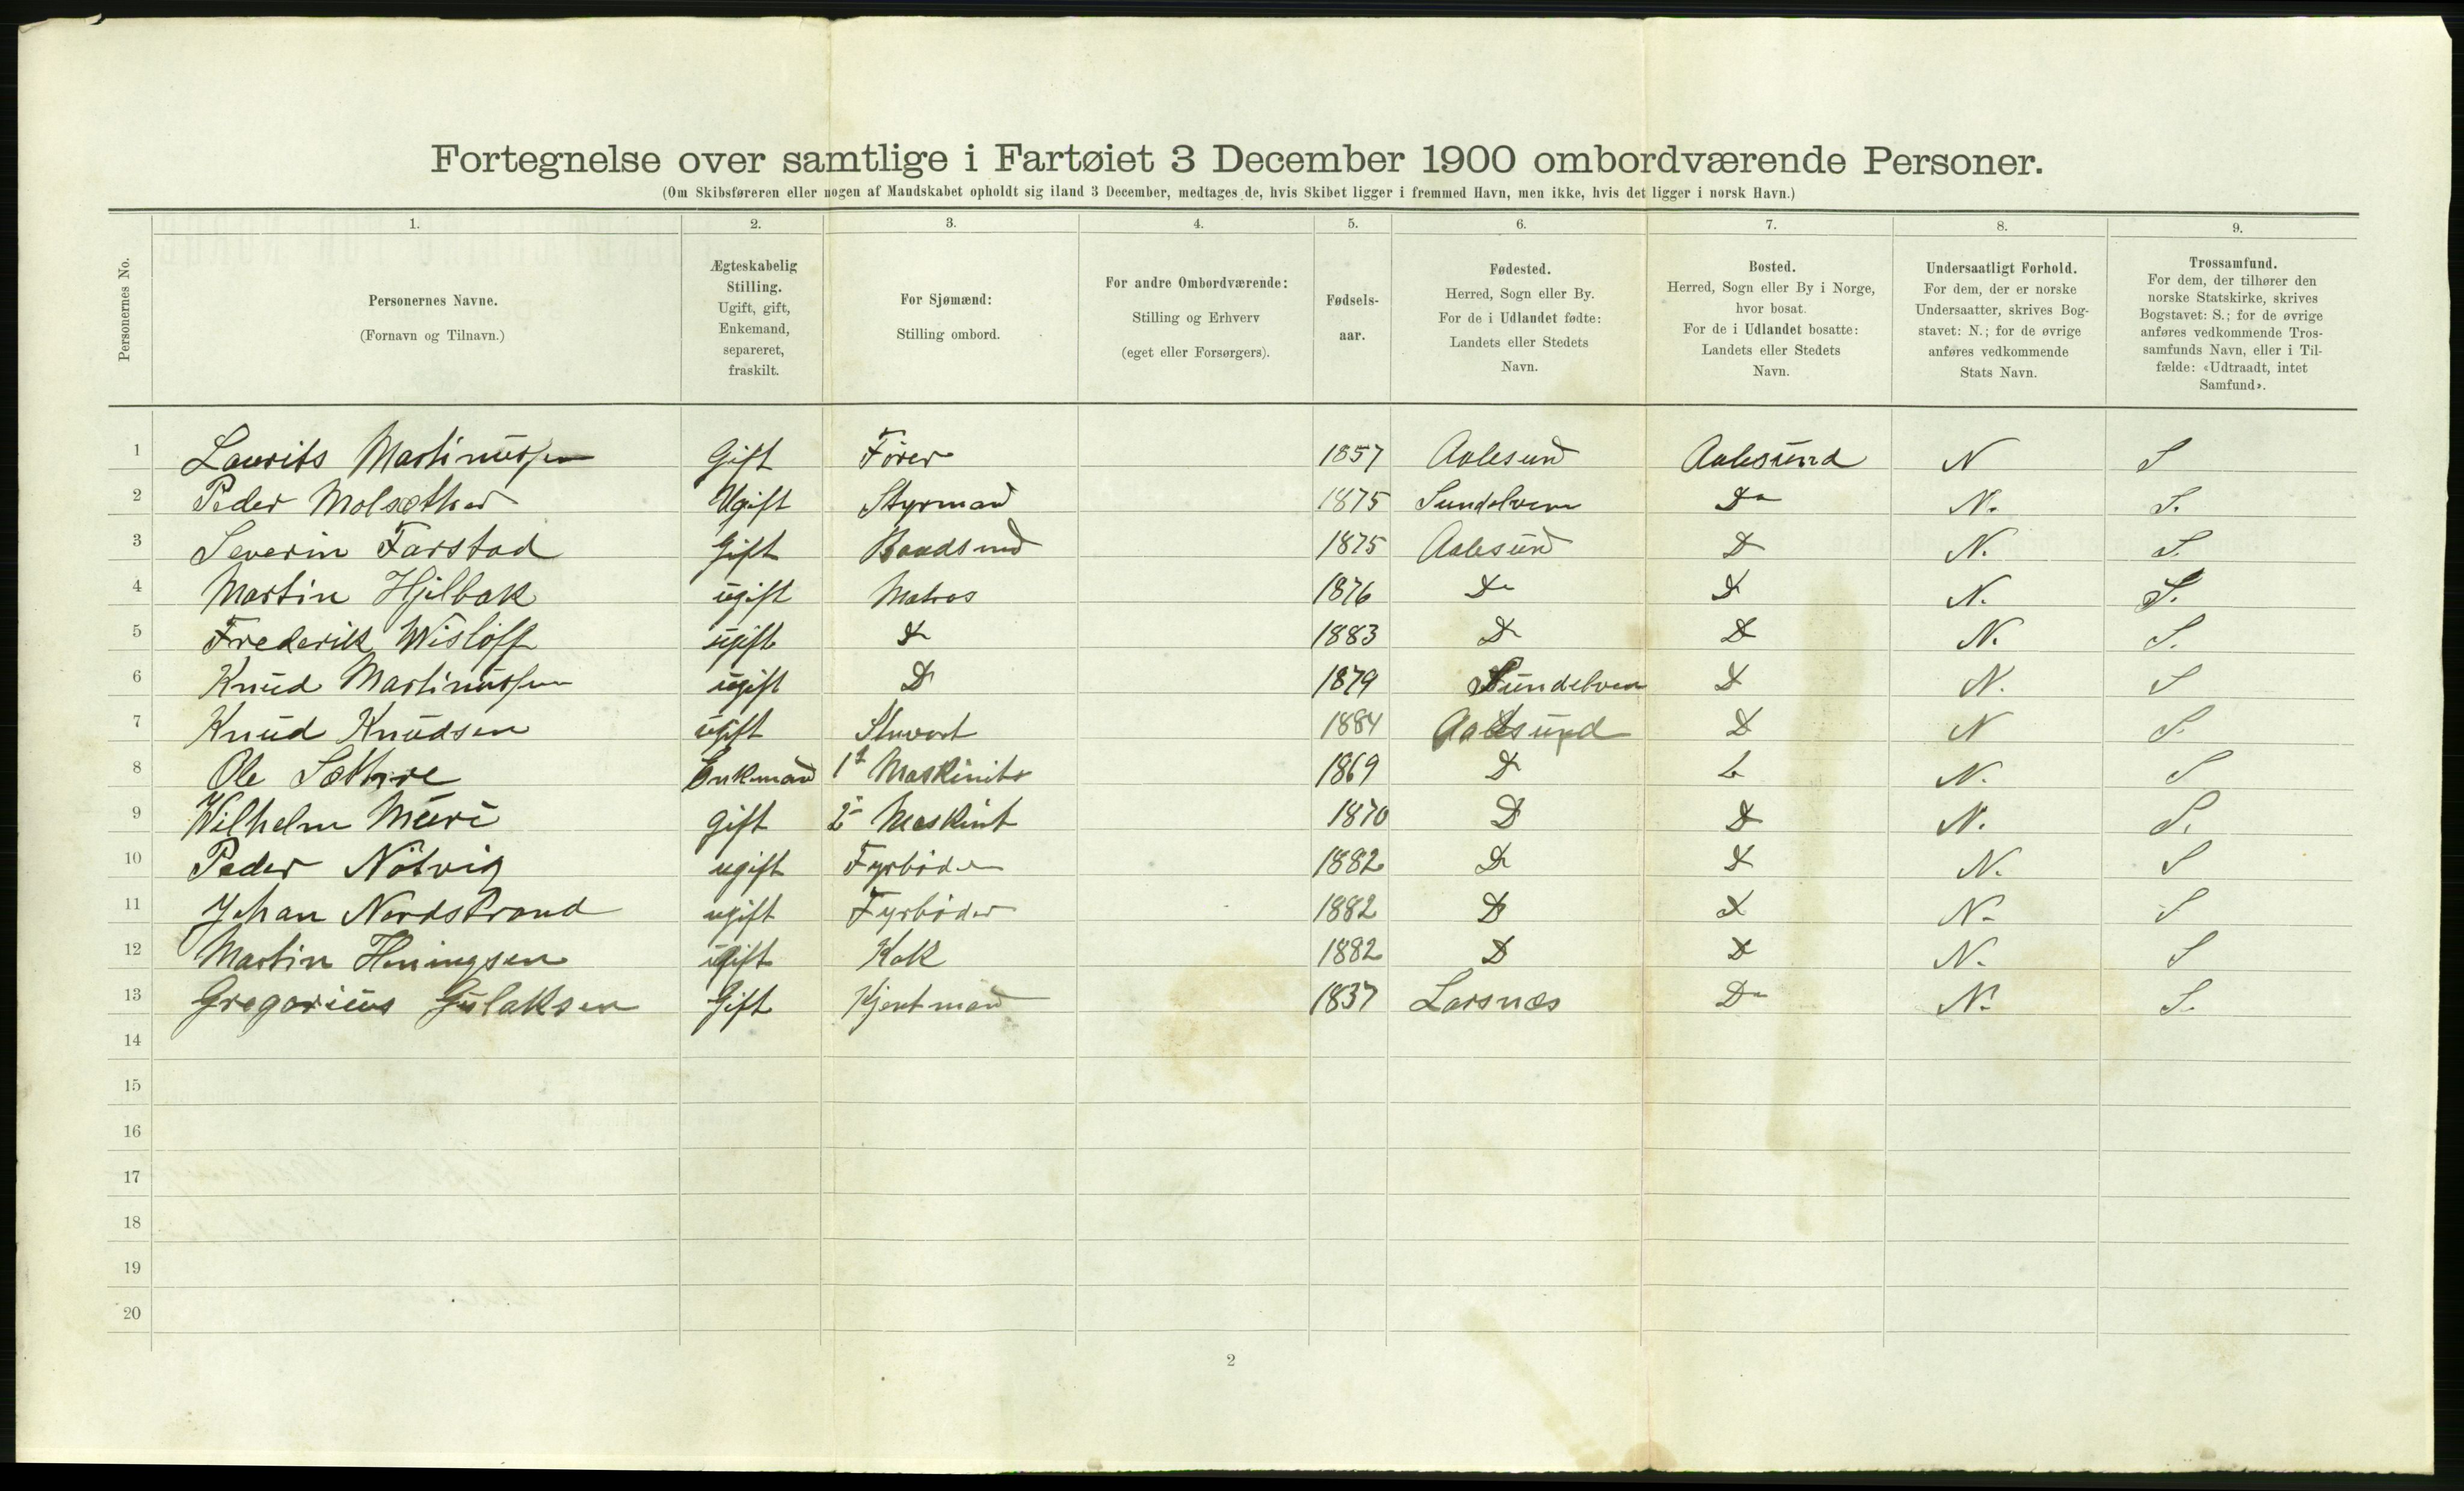 Fortegnelse over samtlige i Fartøiet 3 December 1900 ombordværende Personer.
(Om Skibsføreren eller nogen af Mandskabet opholdt sig iland 3 December, medtages de, hvis Skibet ligger i fremmed Havn, men ikke, hvis det ligger i norsk Havn.)
Personernes No.
1. 2. 3. 4. 5. 6. 7. 8. 9.
Personernes Navne.
(Fornavn og Tilnavn.)
Ægteskabelig
Stilling.
Ugift, gift,
Enkemand,
separeret,
fraskilt.
For Sjømænd:
Stilling ombord.
For andre Ombordværende:
Stilling og Erhverv
(eget eller Forsørgers).
Fødsels-
aar.
Fødested.
Herred, Sogn eller By.
For de i Udlandet fødte:
Landets eller Stedets
Navn.
Bosted.
Herred, Sogn eller By i Norge,
hvor bosat.
For de i Udlandet bosatte:
Landets eller Stedets
Navn.
Undersaatligt Forhold.
For dem, der er norske
Undersaatter, skrives Bog-
stavet: N.; for de øvrige
anføres vedkommende
Stats Navn.
Trossamfund.
For dem, der tilhører den
norske Statskirke, skrives
Bogstavet: S.; for de øvrige
anføres vedkommende Tros-
samfunds Navn, eller i Til-
fælde: «Udtraadt, intet
Samfund».
1 Laurits Martinussen Gift Fører 1857 Aalesund Aalesund N S
2 Peder Molsæther Ugift Styrmand 1875 Sundelven Do N. S.
3 Severin Farstad Gift Baadsmd 1875 Aalesund D N. S.
4 Martin Hjelbak ugift Matros 1876 Do D N. S.
5 Frederik Wisløff ugift Do 1883 Do D N. S.
6 Knud Martinussen ugift D 1879 Sundelven D N. S
7 Knud Knudsen ugift Stuvert 1884 Aalesund D N S.
8 Ole Sæthre Enkmand 1st Maskinits 1869 D N. S
9 Wilhelm Muri gift 2 Maskint 1870 D D N. S.
10 Peder Nötvig ugift Fyrbøder 1882 Do D N. S
11 Johan Nordstrand ugift Fyrbøder 1882 D D N. S
12 Martin Heningsen ugift Kok 1882 D D N. S
13 Gregorius Gulaksen Gift Kjentmand 1837 Larsnæs Do N. S.
14
15
16
17
18
19
20
2